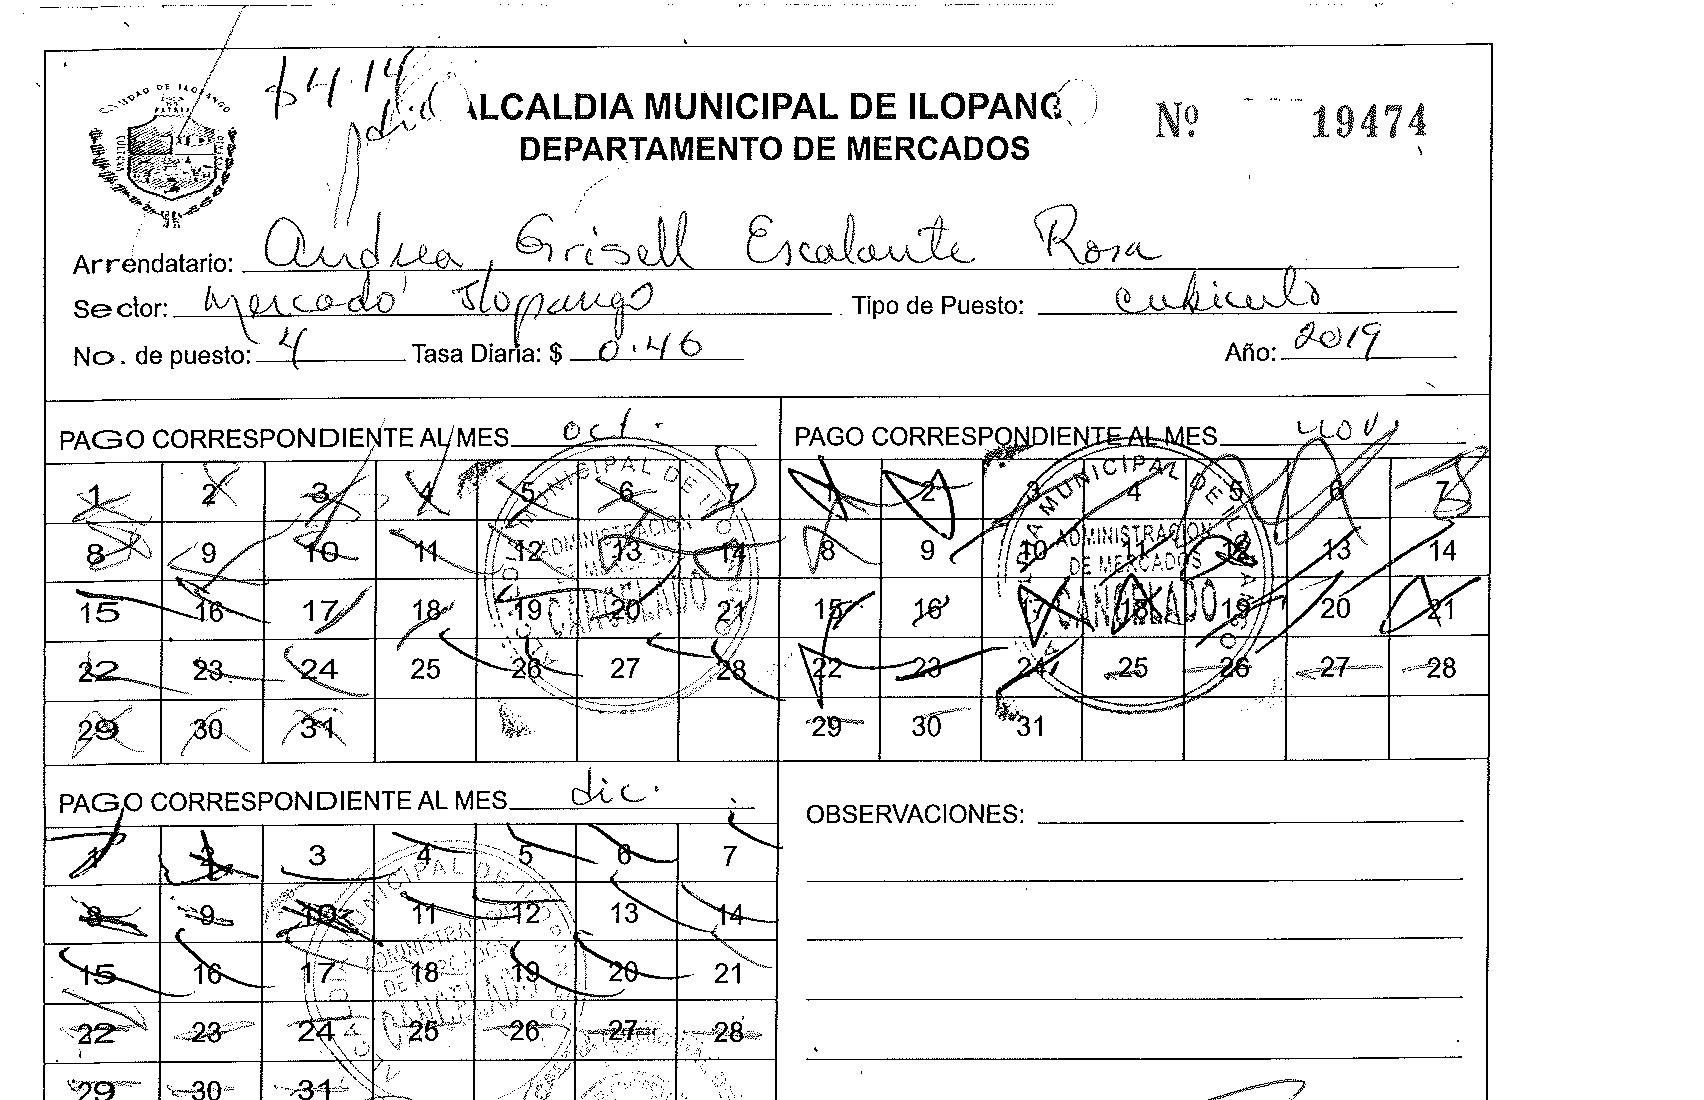 $4.14
ALCALDIA MUNICIPAL DE ILOPANGO
DEPARTAMENTO DE MERCADOS
Nº 19474
CIUDAD DE ILOPANGO
Arrendatario: Andrea Grisell Escalante Rosa
Sector: Mercado Ilopango Tipo de Puesto: cubiculo
No. de puesto: 4 Tasa Diaria: $ 0.46 Año: 2019
PAGO CORRESPONDIENTE AL MES oct.
1 2 3 4 5 6 7
8 9 10 11 12 13 14
15 16 17 18 19 20 21
22 23 24 25 26 27 28
29 30 31
ADMINISTRACION
DE MERCADOS
CANCELADO
PAGO CORRESPONDIENTE AL MES nov
1 2 3 4 5 6 7
8 9 10 11 12 13 14
15 16 17 18 19 20 21
22 23 24 25 26 27 28
29 30 31
ALCALDIA MUNICIPAL DE ILOPANGO
ADMINISTRACION
DE MERCADOS
CANCELADO
PAGO CORRESPONDIENTE AL MES dic.
1 2 3 4 5 6 7
8 9 10 11 12 13 14
15 16 17 18 19 20 21
22 23 24 25 26 27 28
29 30 31
ADMINISTRACION
DE MERCADOS
CANCELADO
OBSERVACIONES: